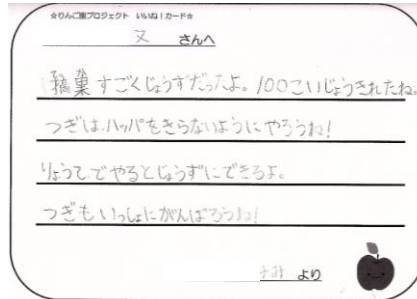 ☆りんご園プロジェクト いいね!カード☆
又 さんへ
すごくじょうずだったよ。100こいじょうきれたね。
つぎは、ハッパをきらないようにやろうね!
りょうてでやるとじょうずにできるよ。
つぎもいっしょにがんばろうね!
より